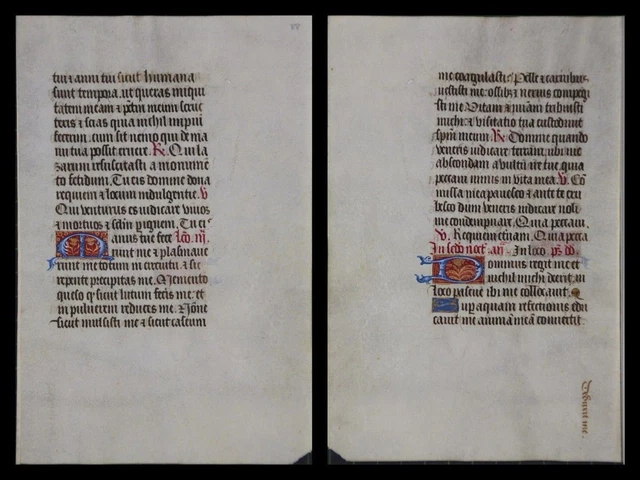 tui et anni tui sicut humana
sunt tempora. ut queras iniqui
tatem meam et pctm meum scrut
teris et scias quia nichil impiu
fecerim. cum sit nemo qui de ma
nu tua possit eruere. R. Qui la
zarum resuscitasti a monumen
to fetidum. Tu eis domine dona
requiem et locum indulgentie. V
Qui venturus es iudicare vivos
et mortuos et sclm p ignem. Tu ei
Manus tue fecer lco. iii.
runt me et plasmaue
runt me totum in circuitu. et sic
repente precipitas me. Memento
queso qr sicut lutum feceris me. et
in pulverem reduces me. Nonne
sicut mulsisti me et sicut caseum
me coagulasti. Pelle et carnibus
vestisti me. ossibz et nervis compegi
sti me. Vitam et miam tribuisti
michi. et visitatio tua custodiuit
spm meum. R. Domine quando
veneris iudicare terram. ubi me
abscondam a vultu ire tue. quia
peccavi nimis in vita mea. V. Co
missa mea pavesco et ante te eru
besco dum veneris iudicare noli
me condempnare. Quia peccavi.
V. Requiem etnam. Quia pecca
In sedo noct. an. In loco. ps dd.
Dominus regit me et
nichil michi deerit. in
loco pascue ibi me collocavit.
Sup aquam refectionis edu
cavit me. animam mea convertit.
Deduxit me.